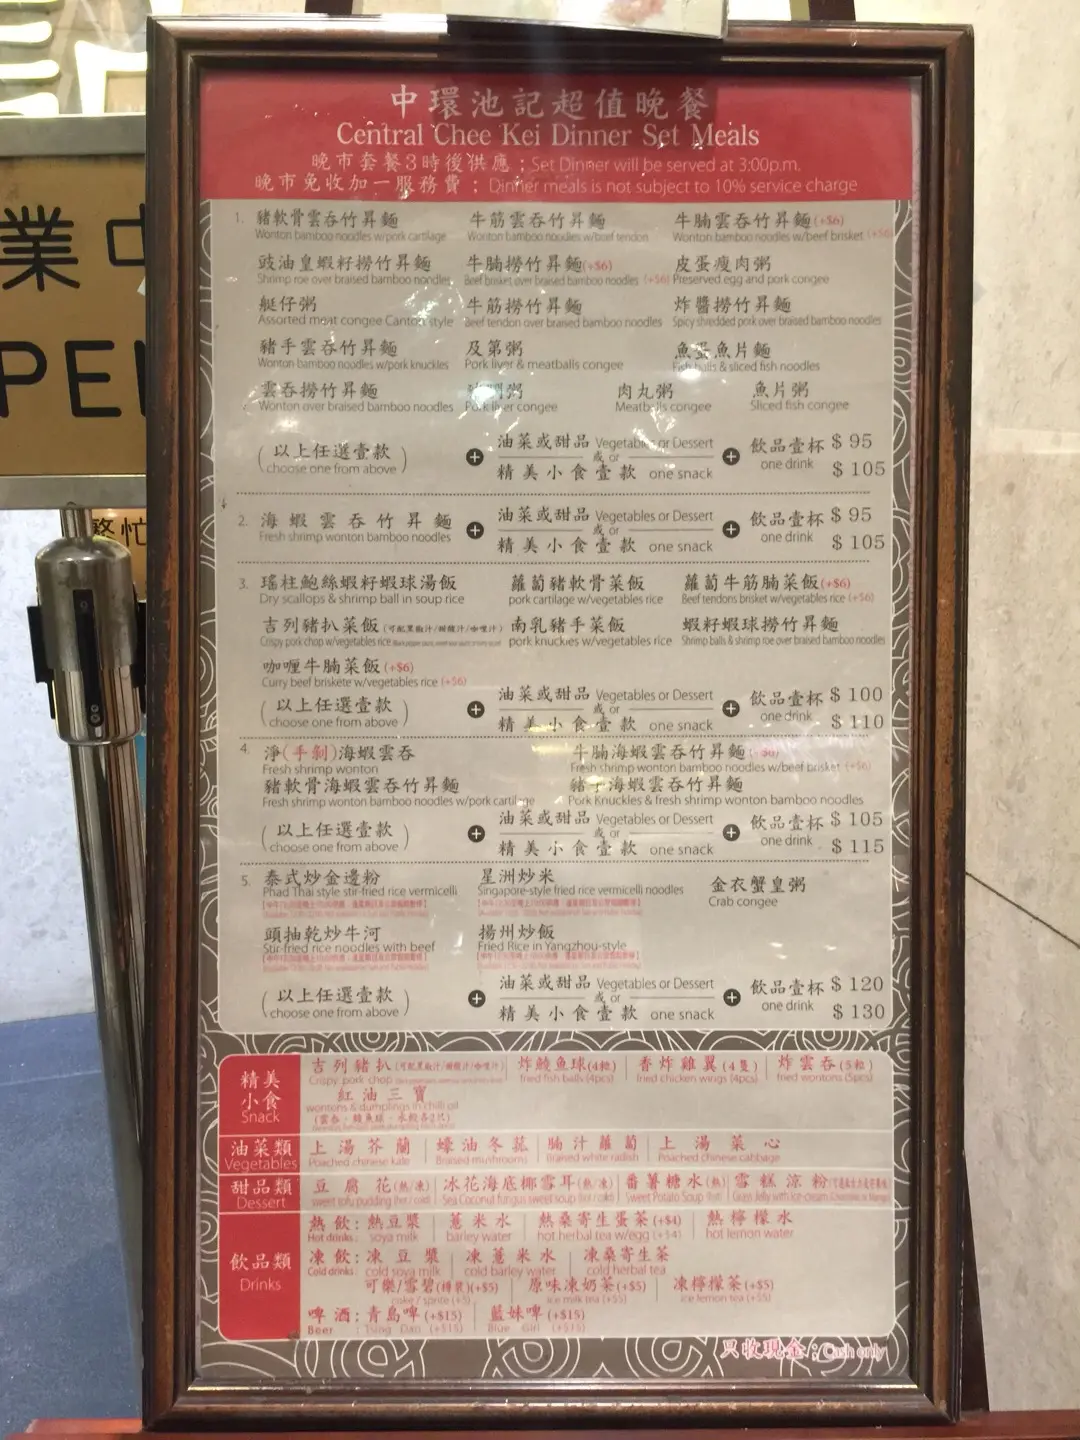 中環池記超值晚餐
Central Chee Kei Dinner Set Meals
晚市套餐3時後供應；Set Dinner will be served at 3:00p.m.
晚市免收加一服務費；Dinner meals is not subject to 10% service charge
業
PE
繁忙
1. 豬軟骨雲吞竹昇麵 牛筋雲吞竹昇麵 牛腩雲吞竹昇麵(+$6)
Wonton bamboo noodles w/pork cartilage Wonton bamboo noodles w/beef tendon Wonton bamboo noodles w/beef brisket (+$6)
豉油皇蝦籽撈竹昇麵 牛腩撈竹昇麵(+$6) 皮蛋瘦肉粥
Shrimp roe over braised bamboo noodles Beef brisket over braised bamboo noodles (+$6) Preserved egg and pork congee
艇仔粥 牛筋撈竹昇麵 炸醬撈竹昇麵
Assorted meat congee Canton style Beef tendon over braised bamboo noodles Spicy shredded pork over braised bamboo noodles
豬手雲吞竹昇麵 及第粥 魚蛋魚片麵
Wonton bamboo noodles w/pork knuckles Pork liver & meatballs congee Fish balls & sliced fish noodles
雲吞撈竹昇麵 粥 肉丸粥 魚片粥
Wonton over braised bamboo noodles Pork liver congee Meatballs congee Sliced fish congee
(以上任選壹款) 油菜或甜品 Vegetables or Dessert 飲品壹杯 $ 95
(choose one from above) + 或 or + one drink
精美小食壹款 one snack $ 105
2. 海蝦雲吞竹昇麵 油菜或甜品 Vegetables or Dessert 飲品壹杯 $ 95
Fresh shrimp wonton bamboo noodles + 或 or + one drink
精美小食壹款 one snack $ 105
3. 瑤柱鮑絲蝦籽蝦球湯飯 蘿蔔豬軟骨菜飯 蘿蔔牛筋腩菜飯(+$6)
Dry scallops & shrimp ball in soup rice pork cartilage w/vegetables rice Beef tendons brisket w/vegetables rice (+$6)
吉列豬扒菜飯(可配黑椒汁/甜酸汁/咖喱汁) 南乳豬手菜飯 蝦籽蝦球撈竹昇麵
Crispy pork chop w/vegetables rice pork knuckies w/vegetables rice Shrimp balls & shrimp roe over braised bamboo noodles
咖喱牛腩菜飯(+$6)
Curry beef briskete w/vegetables rice (+$6)
(以上任選壹款) 油菜或甜品 Vegetables or Dessert 飲品壹杯 $ 100
(choose one from above) + 或 or + one drink
精美小食壹款 one snack $ 110
4. 淨(手剝)海蝦雲吞 牛腩海蝦雲吞竹昇麵(+$6)
Fresh shrimp wonton Fresh shrimp wonton bamboo noodles w/beef brisket (+$6)
豬軟骨海蝦雲吞竹昇麵 豬手海蝦雲吞竹昇麵
Fresh shrimp wonton bamboo noodles w/pork cartilage Pork Knuckles & fresh shrimp wonton bamboo noodles
(以上任選壹款) 油菜或甜品 Vegetables or Dessert 飲品壹杯 $ 105
(choose one from above) + 或 or + one drink
精美小食壹款 one snack $ 115
5. 泰式炒金邊粉 星洲炒米 金衣蟹皇粥
Phad Thai style stir-fried rice vermicelli Singapore-style fried rice vermicelli noodles Crab congee
頭抽乾炒牛河 揚州炒飯
Stir-fried rice noodles with beef Fried Rice in Yangzhou-style
(以上任選壹款) 油菜或甜品 Vegetables or Dessert 飲品壹杯 $ 120
(choose one from above) + 或 or + one drink
精美小食壹款 one snack $ 130
精美小食 Snack
吉列豬扒(可配黑椒汁/甜酸汁/咖喱汁) 炸鯪魚球(4粒) 香炸雞翼(4隻) 炸雲吞(5粒)
Crispy pork chop fried fish balls (4pcs) fried chicken wings (4pcs) fried wontons (5pcs)
紅油三寶
wontons & dumplings in chilli oil
油菜類 Vegetables
上湯芥蘭 蠔油冬菰 腩汁蘿蔔 上湯菜心
Poached chinese kale Braised mushrooms Brained white radish Poached chinese cabbage
甜品類 Dessert
豆腐花(熱/凍) 冰花海底椰雪耳(熱/凍) 番薯糖水(熱) 雪糕涼粉
sweet tofu pudding (hot / cold) Sea Coconut fungus sweet soup (hot / cold) Sweet Potato Soup (hot) Grass Jelly with ice-cream
飲品類 Drinks
熱飲：熱豆漿 薏米水 熱桑寄生蛋茶(+$4) 熱檸檬水
Hot drinks: soya milk barley water hot herbal tea w/egg (+$4) hot lemon water
凍飲：凍豆漿 凍薏米水 凍桑寄生茶
Cold drinks: cold soya milk cold barley water cold herbal tea
可樂/雪碧(樽裝)(+$5) 原味凍奶茶(+$5) 凍檸檬茶(+$5)
coke / sprite (+5) ice milk tea (+$5) ice lemon tea (+$5)
啤酒：青島啤(+$15) 藍妹啤(+$15)
Beer : Tsing Dao (+$15) Blue Girl (+$15)
只收現金：Cash only